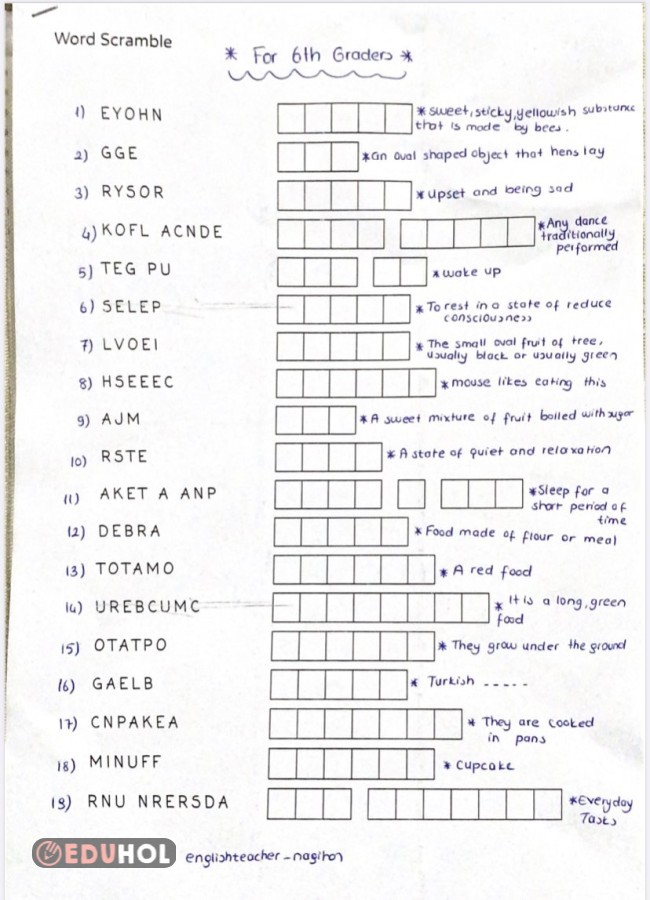 Word Scramble
* For 6th Graders *
1) EYOHN * sweet, sticky, yellowish substance
that is made by bees.
2) GGE * an oval shaped object that hens lay
3) RYSOR * upset and being sad
4) KOFL ACNDE * Any dance
traditionally
performed
5) TEG PU * wake up
6) SELEP * To rest in a state of reduce
consciousness
7) LVOEI * The small oval fruit of tree,
usually black or usually green
8) HSEEEC * mouse likes eating this
9) AJM * A sweet mixture of fruit boiled with sugar
10) RSTE * A state of quiet and relaxation
11) AKET A ANP * Sleep for a
short period of
time
12) DEBRA * Food made of flour or meal
13) TOTAMO * A red food
14) UREBCUMC * It is a long, green
food
15) OTATPO * They grow under the ground
16) GAELB * Turkish -----
17) CNPAKEA * They are cooked
in pans
18) MINUFF * Cupcake
19) RNU NRERSDA * Everyday
Tasks
EDUHOL englishteacher_nagihan